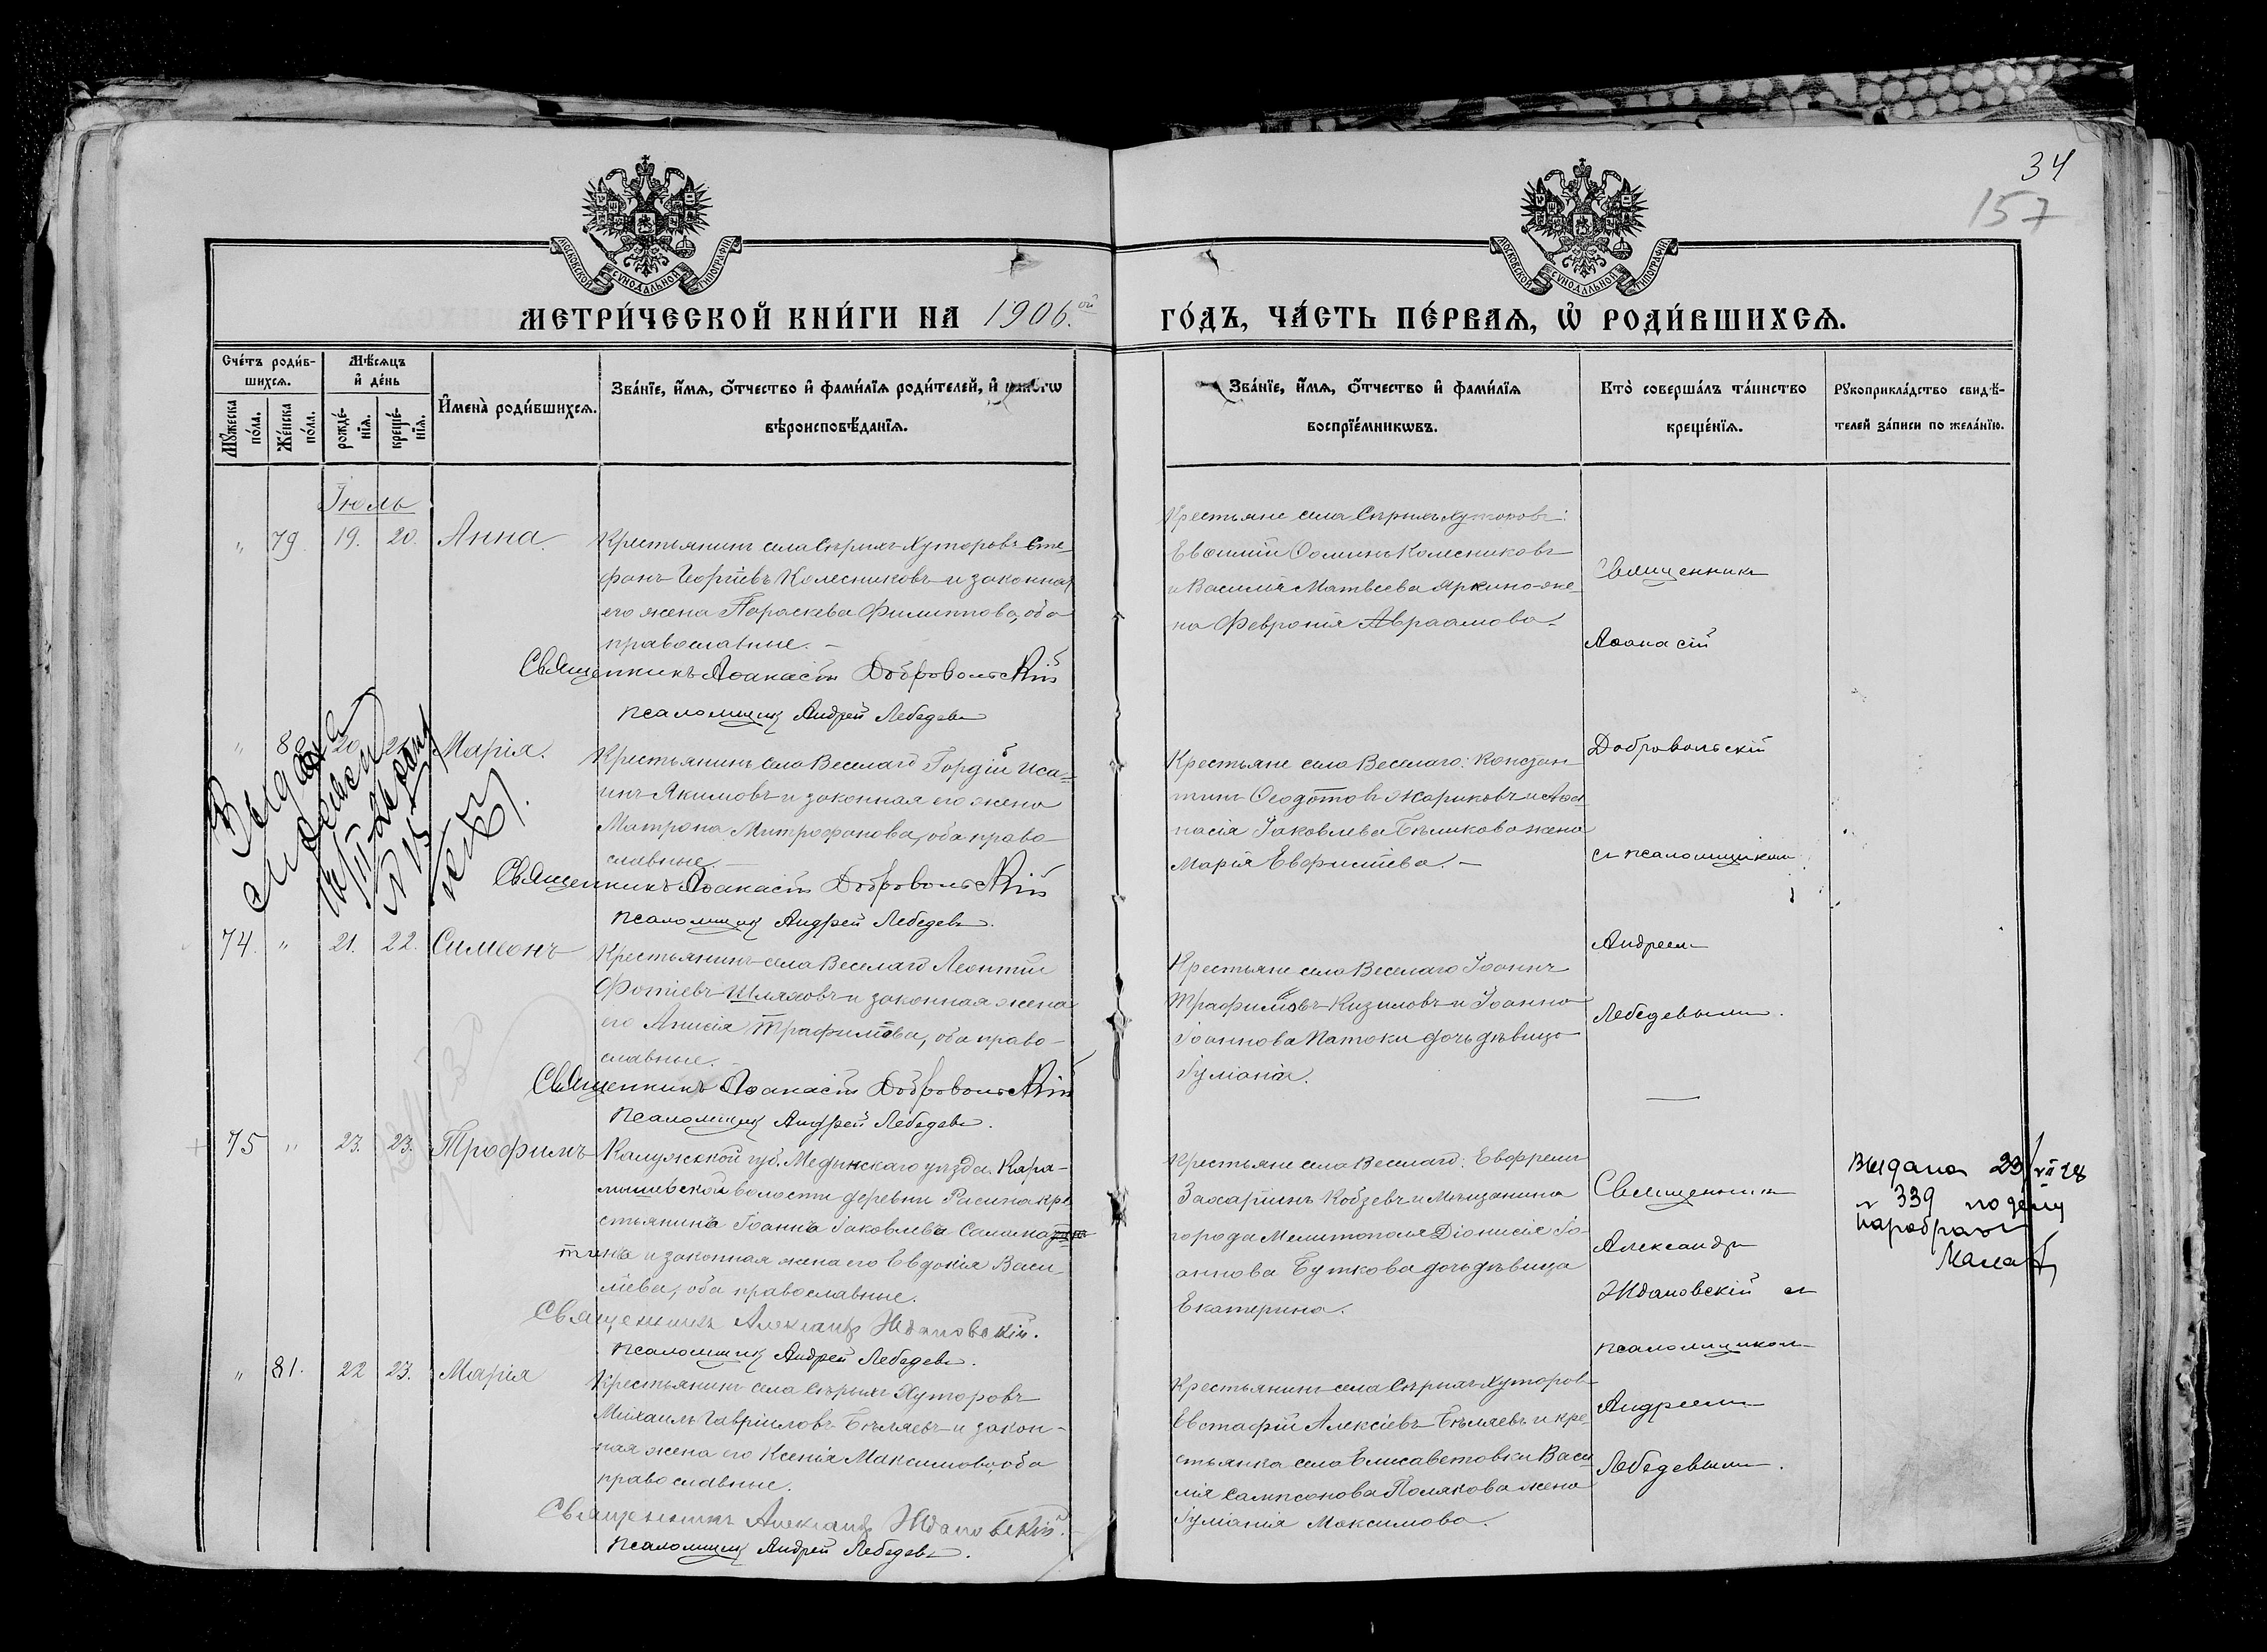 34
157
МОСКОВСКОЙ СѴНОДАЛЬНОЙ ТИПОГРАФІИ
МОСКОВСКОЙ СѴНОДАЛЬНОЙ ТИПОГРАФІИ
МЕТРИ́ЧЕСКОЙ КНИ́ГИ НА 1906.ой
ГО́ДЪ, ЧА́СТЬ ПЕ́РВАѦ, Ѡ҆ РОДИ́ВШИХСѦ.
Сче́тъ роди́в-
шихсѧ.
Мꙋ́жеска по́ла.
Же́нска по́ла.
Мѣ́сѧцъ
и҆ де́нь
рожде́-
нїѧ.
креще́-
нїѧ.
И҆мена̀ роди́вшихсѧ.
Зва́нїе, и҆́мѧ, ѻ҆́тчество и҆ фами́лїѧ роди́телей, и҆ како́гѡ
вѣроисповѣ́данїѧ.
Зва́нїе, и҆́мѧ, ѻ҆́тчество и҆ фами́лїѧ
воспрїе́мникѡвъ.
Кто̀ соверша́лъ та́инство
креще́нїѧ.
Рꙋкоприкла́дство свидѣ́-
телей за́писи по жела́нїю.
Іюль
„ 79. 19. 20. Анна.
Крестьянинъ села Сѣрыхъ-Хуторовъ Сте-
фанъ Георгіевъ Колесниковъ и законная
его жена Параскева Филиппова, оба
православные. –
Священникъ Аѳанасій Добровольскій
псаломщик Андрей Лебедевъ
Крестьяне села Сѣрыхъ Хуторовъ:
Евѳимій Ѳоминъ Колесниковъ
и Василія Матвѣева Яркина жена
Февронія Авраамова.
Священникъ
Аѳанасій
Добровольскій
съ псаломщикомъ
Андреемъ
Лебедевымъ.
„ 80 20 21 Марія.
Крестьянинъ села Веселаго Гордій Иса-
инъ Якимовъ и законная его жена
Матрона Митрофанова, оба право-
славные. –
Священникъ Аѳанасій Добровольскій
псаломщик Андрей Лебедевъ.
Крестьяне села Веселаго: Констан-
тинъ Ѳеодотовъ Жариковъ и Аѳа-
насія Іаковлева Бѣликова жена
Марія
Выдана
74. „ 21. 22. Симеонъ
Крестьянинъ села Веселаго Леонтій
Фотіевъ Шляховъ и законная жена
его Анисія Трафимова, оба право-
славные.
Священникъ Аѳанасій Добровольскій
Псаломщик Андрей Лебедевъ.
Крестьяне села Веселаго Іоаннъ
Трафимовъ Кизиловъ и Іоанна
Іоаннова Патоки дочь дѣвица
Іуліанія.
75 „ 23. 23. Трофимъ
Калужской губ. Медынскаго уѣзда. Кара-
мышевской волости деревни Расина кре
стьянинъ Іоаннъ Іаковлевъ
и законная жена его Евдокія Васи-
ліева, оба православные.
Священникъ Александр Ждановскій.
псаломщик Андрей Лебедевъ.
Крестьяне села Веселаго: Евфремъ
Захаріинъ Кобзевъ и Мѣщанина
города Мелитополя Діонисія Іо-
аннова Буткова дочь дѣвица
Екатерина.
Священникъ
Александръ
Ждановскій съ
псаломщикомъ
Андреемъ
Лебедевымъ.
Выдана 23/VII 28
№ 339 по делу
„ 81. 22 23. Марія
Крестьянинъ села Сѣрыхъ Хуторовъ
Михаилъ Гавріиловъ Бѣляевъ и закон-
ная жена его Ксенія Максимова, оба
православные.
Священникъ Александр Ждановскій.
псаломщик Андрей Лебедевъ.
Крестьянинъ села Сѣрыхъ-Хуторовъ
Евстафій Алексіевъ Бѣляевъ и кре-
стьянка села Елисаветовки Васи
лія Сампсонова Полякова жена
Іуліанія Максимова.